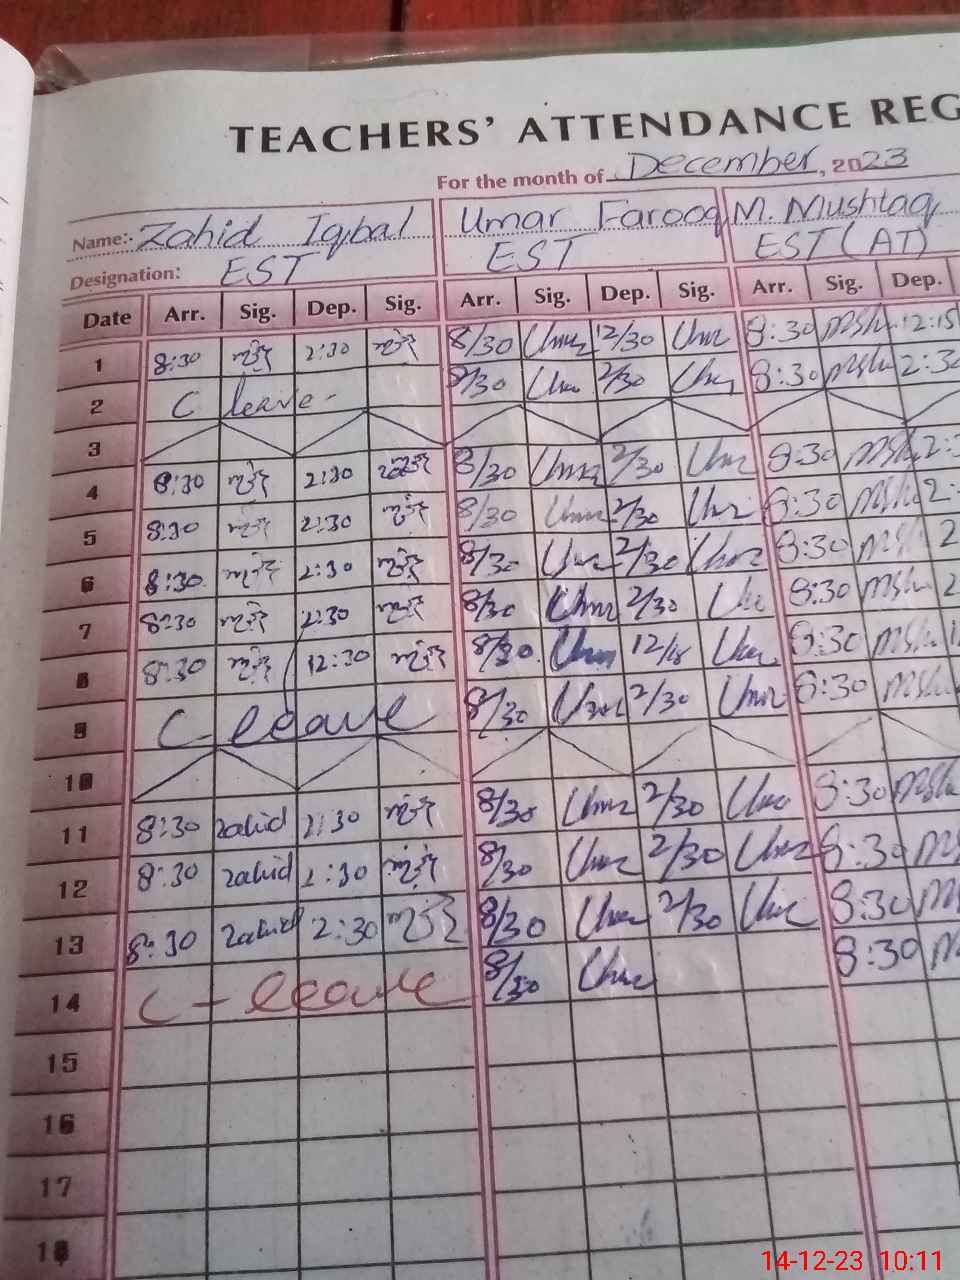 TEACHERS' ATTENDANCE REG
For the month of December, 2023
Name:- Zahid Iqbal Umar Farooq M. Mushtaq
Designation: EST EST EST (AT)
Date Arr. Sig. Dep. Sig. Arr. Sig. Dep. Sig. Arr. Sig. Dep.
1 8:30 2:30 8/30 Umr 12/30 Umr 8:30 Msh 12:15
2 C leave - 8/30 Umr 2/30 Umr 8:30 Msh 2:30
3
4 8:30 2:30 8/30 Umr 2/30 Umr 8:30 Msh 2:
5 8:30 2:30 8/30 Umr 2/30 Umr 8:30 Msh 2:
6 8:30 2:30 8/30 Umr 2/30 Umr 8:30 Msh 2
7 8:30 2:30 8/30 Umr 2/30 Umr 8:30 Msh 2
8 8:30 12:30 8/30 Umr 12/15 Umr 8:30 Msh 1
9 C leave 8/30 Umr 2/30 Umr 8:30 Msh
10
11 8:30 zahid 2:30 8/30 Umr 2/30 Umr 8:30 Msh
12 8:30 zahid 2:30 8/30 Umr 2/30 Umr 8:30 Ms
13 8:30 zahid 2:30 8/30 Umr 2/30 Umr 8:30 Ms
14 C - leave 8/30 Umr 8:30 M
15
16
17
18
14-12-23 10:11